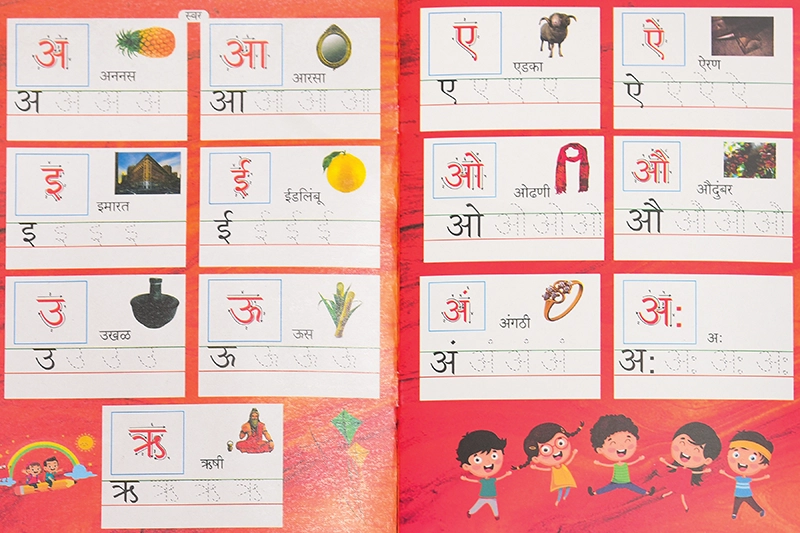 स्वर
अ
अननस
अ अ अ अ
आ
आरसा
आ आ आ आ
इ
इमारत
इ इ इ इ
ई
ईडलिंबू
ई ई ई ई
उ
उखळ
उ उ उ उ
ऊ
ऊस
ऊ ऊ ऊ ऊ
ऋ
ऋषी
ऋ ऋ ऋ ऋ
ए
एडका
ए ए ए ए
ऐ
ऐरण
ऐ ऐ ऐ ऐ
ओ
ओढणी
ओ ओ ओ ओ
औ
औदुंबर
औ औ औ औ
अं
अंगठी
अं अं अं अं
अः
अः
अः अः अः अः